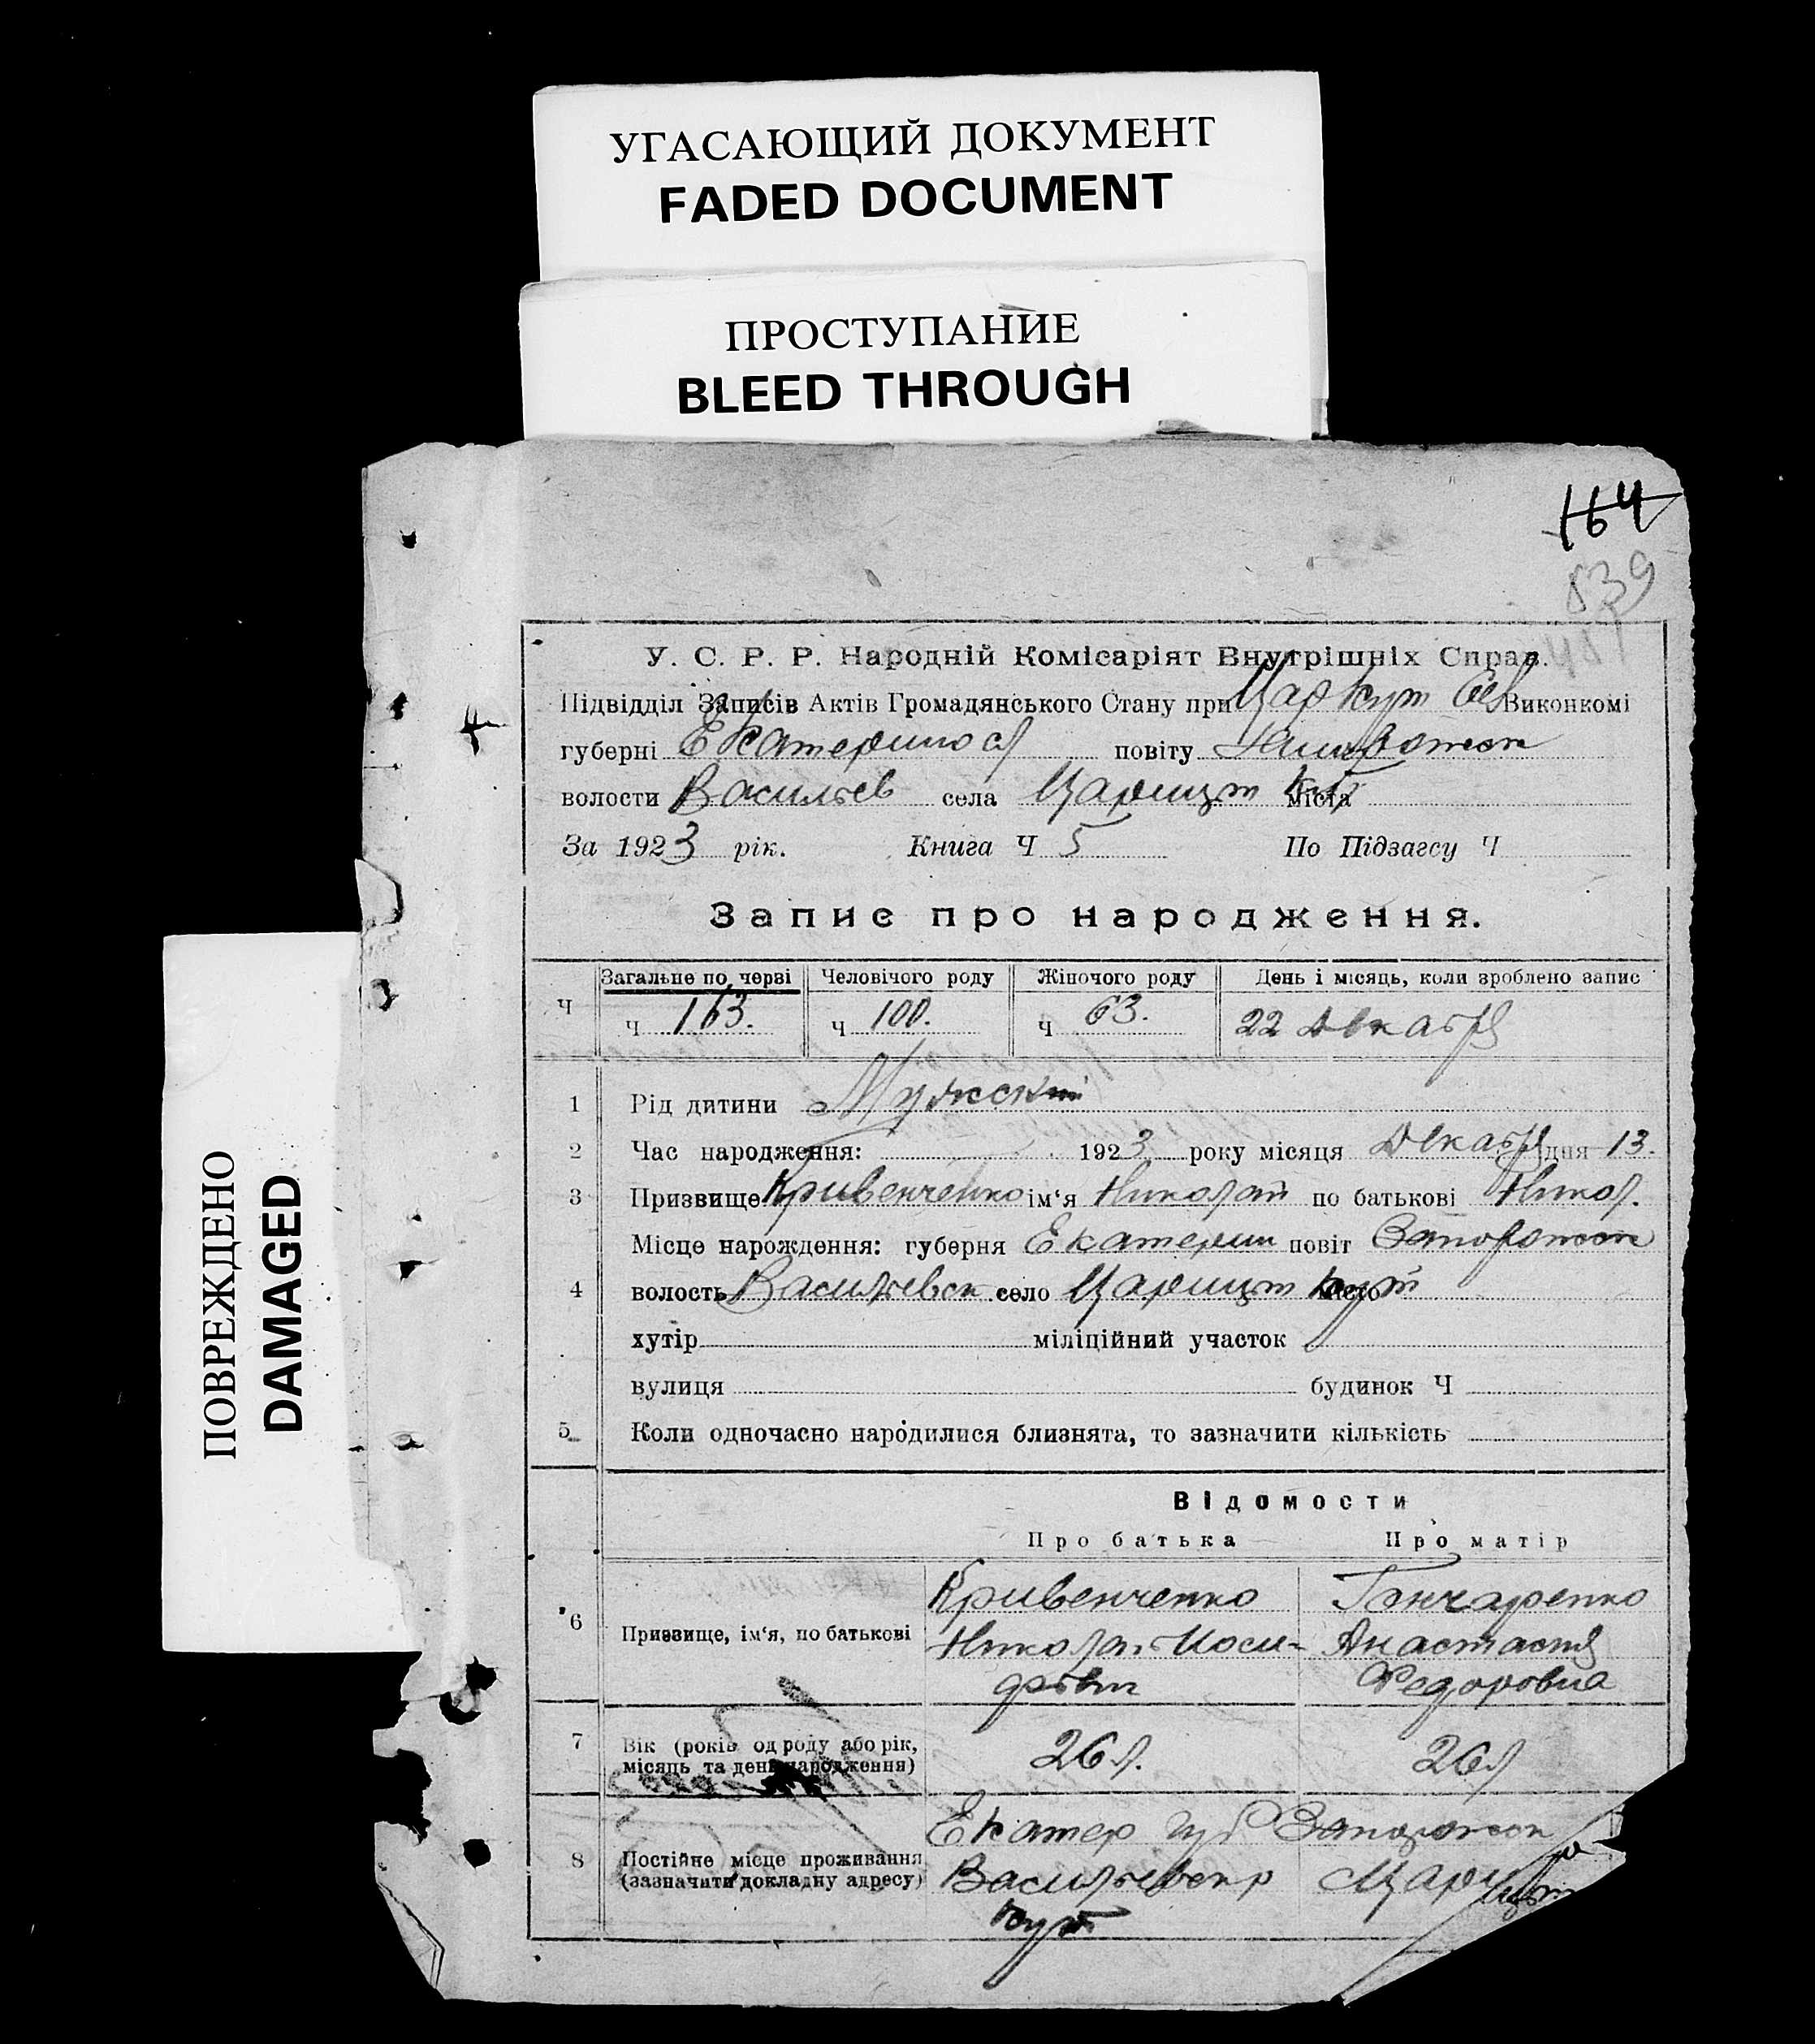 УГАСАЮЩИЙ ДОКУМЕНТ
FADED DOCUMENT
ПРОСТУПАНИЕ
BLEED THROUGH
ПОВРЕЖДЕНО
DAMAGED
164
839
У. С. Р. Р. Народній Комісаріят Внутрішніх Справ.
Підвідділ Записів Актів Громадянського Стану при Цар Кут Виконкомі
губерні Екатеринос повіту
волости Васильев села Царицын Кут міста
За 1923 рік. Книга Ч 5 По Підзагсу Ч
Запис про народження.
Загальне по черзі Человічого роду Жіночого роду День і місяць, коли зроблено запис
Ч Ч 163. Ч 100. Ч 63. 22 Декабря
1 Рід дитини Мужской
2 Час народження: 1923 року місяця Декабря дня 13.
3 Призвище Кривенченко ім‘я Николай по батькові Никол.
Місце нарождення: губерня Екатерин повіт Запорожск
4 волость Васильевск село Царицын Кут місто
хутір міліційний участок
вулиця будинок Ч
5 Коли одночасно народилися близнята, то зазначити кількість
Відомости
Про батька Про матір
6 Призвище, ім‘я, по батькові
Кривенченко Гончаренко
Никола. Иоси- Анастасия
фович Федоровна
7 Вік (років од роду або рік, місяць та день народження) 26 л. 26 л
8 Постійне місце проживання (зазначити докладну адресу)
Екатер губ Запорожск
Васильевск р Царицын
Кут